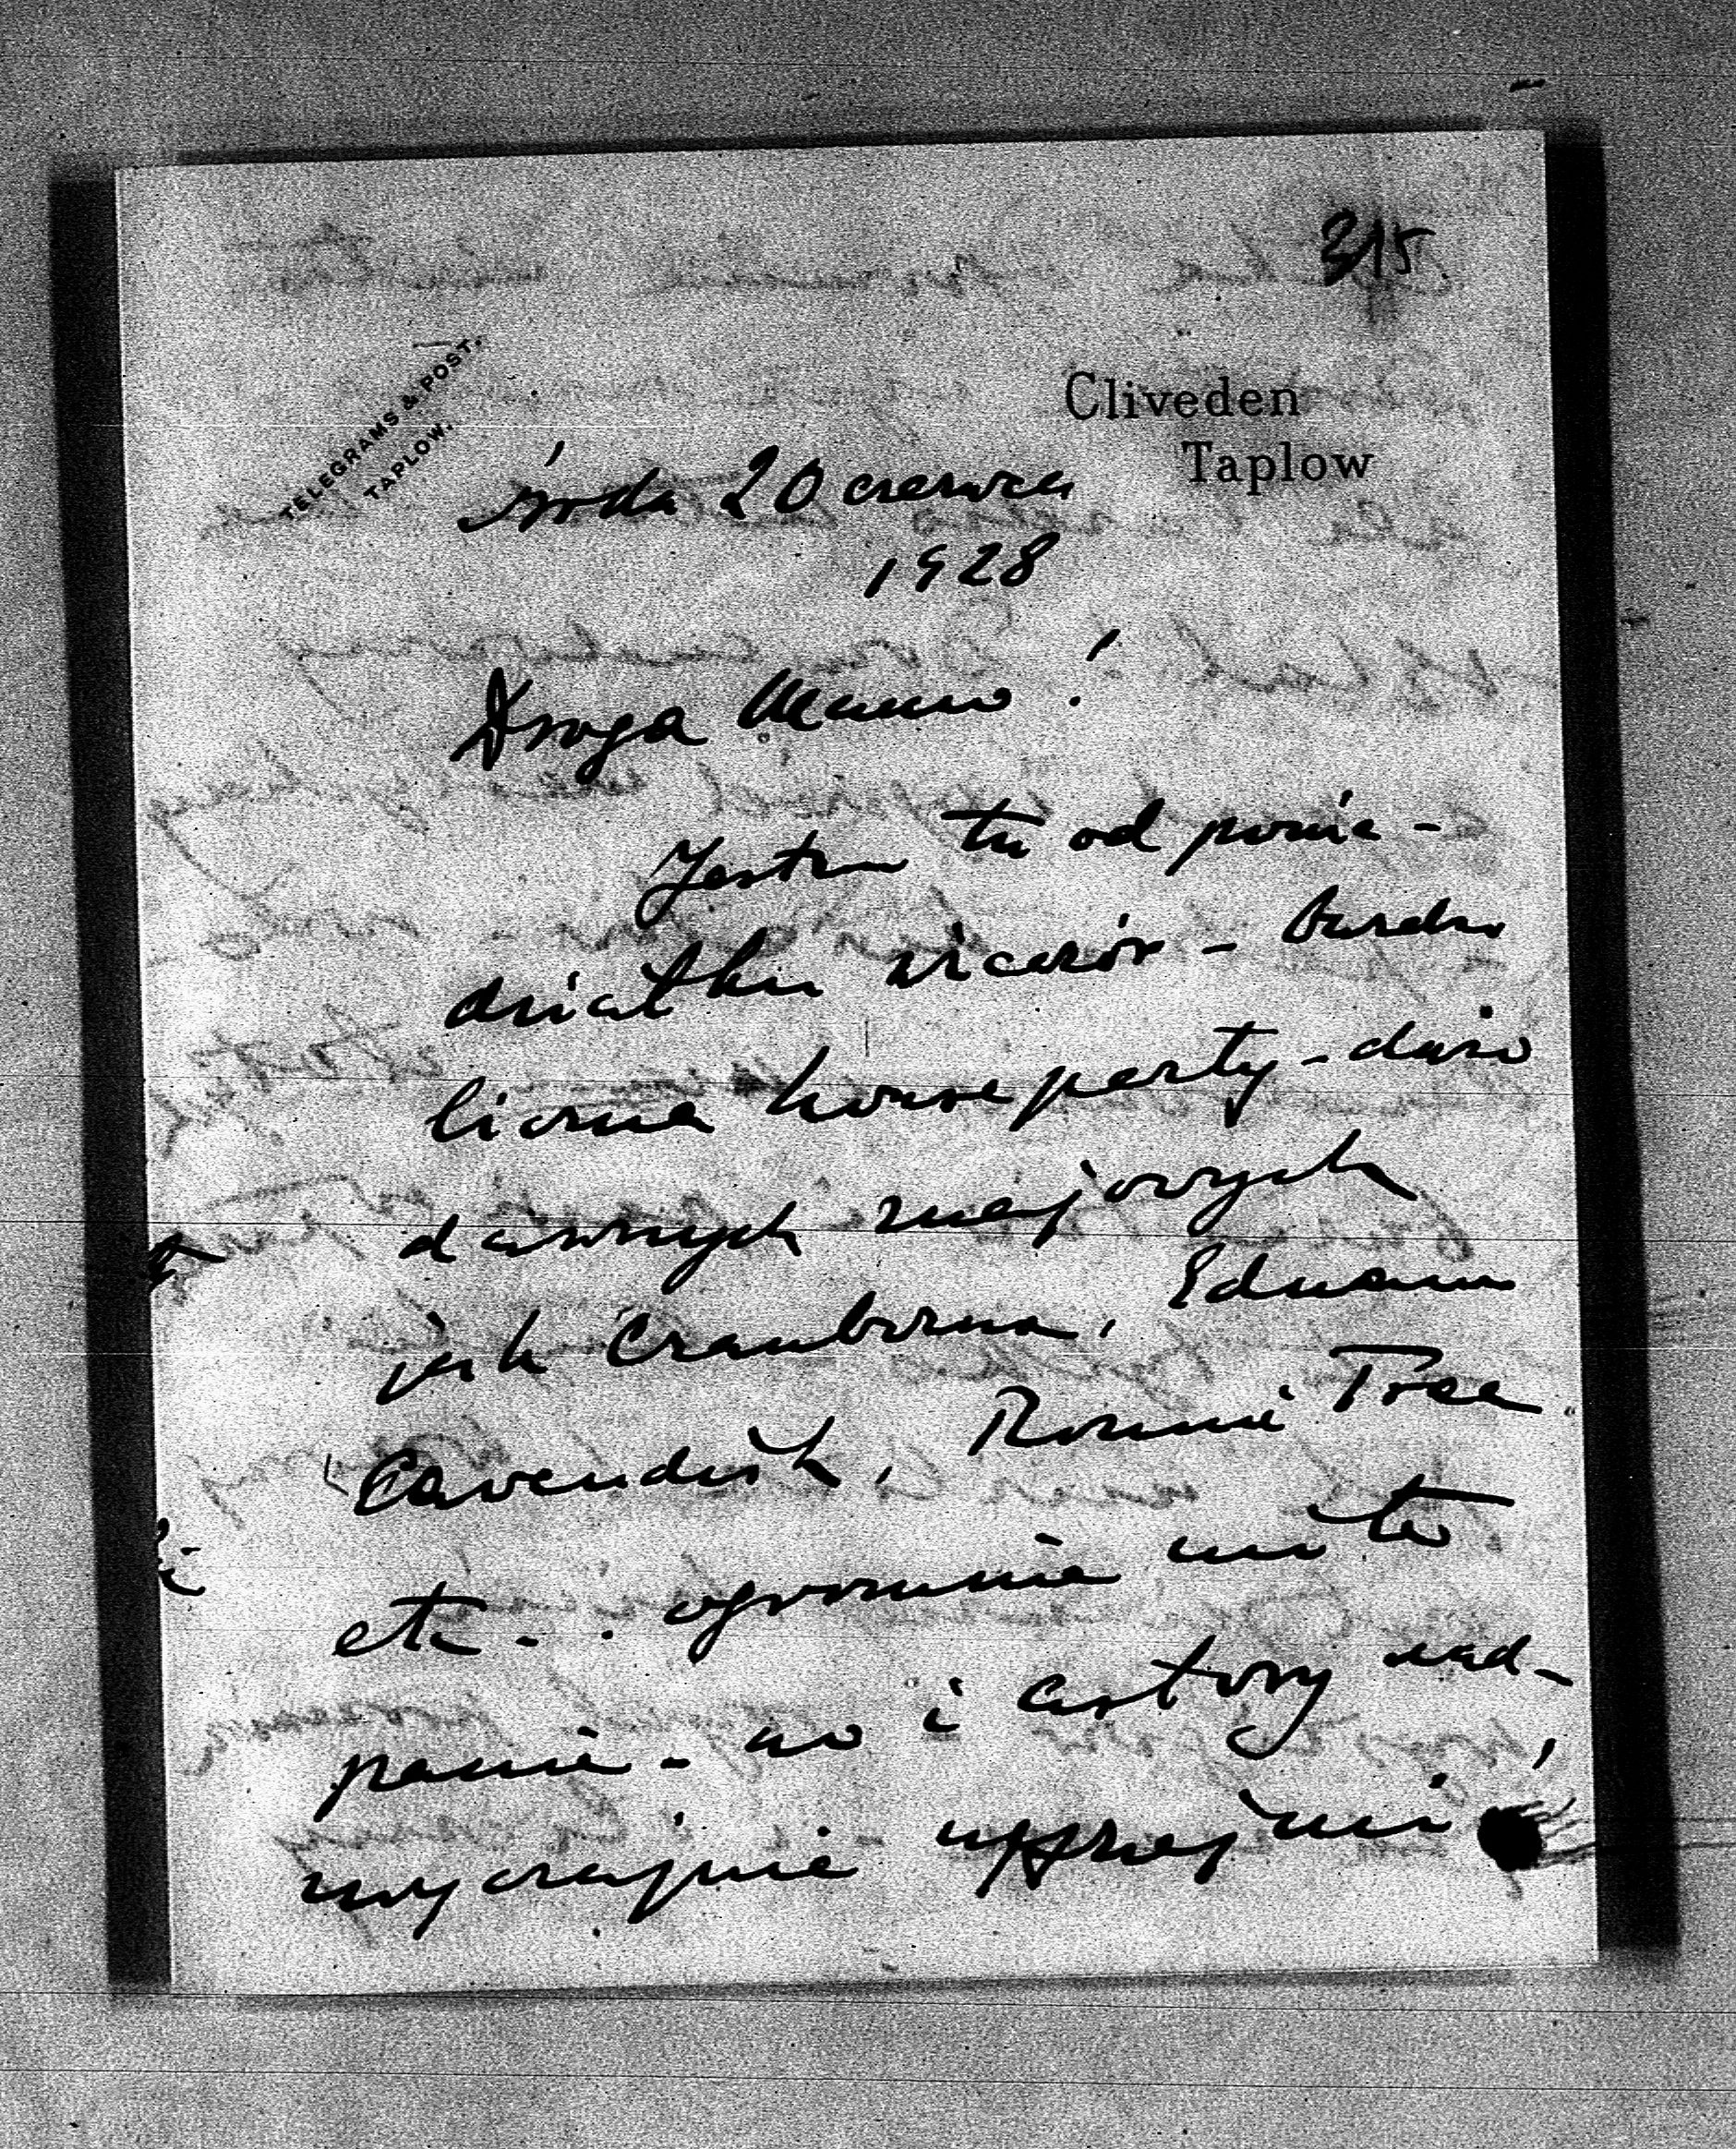 315.
TELEGRAMS & POST.
TAPLOW.
Cliveden
Taplow
środa 20 czerwca
1928
Droga Mamo!
Jestem tu od ponie-
działku wieczór - bardzo
liczne house party - dużo
dawnych znajomych
jak Cranborne,
Cavendish, Ronnie Tree
etc.. ogromnie miło
panie - no i Astory nad-
zwyczajnie uprzejmi